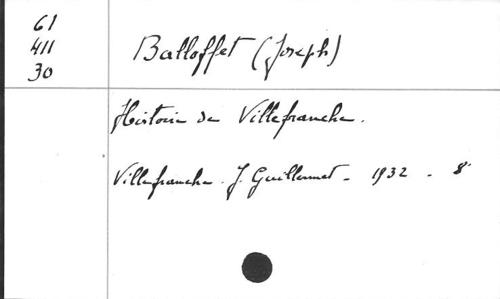 61
411
30
Balloffet (Joseph)
Histoire de Villefranche.
Villefranche. J. Guillermet - 1932 - 8°